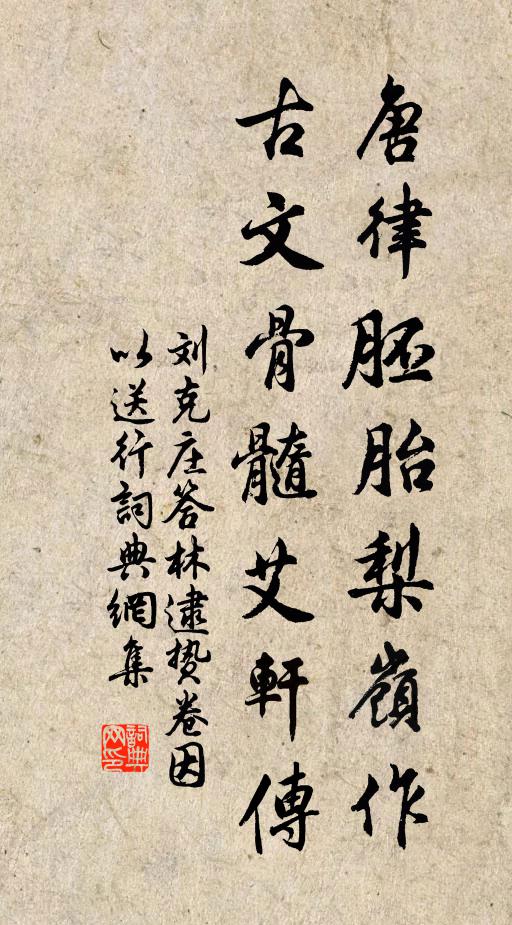 唐律胚胎梨嶺作
古文骨髓艾軒傳
刘克庄答林逮贽卷因
以送行詞典網集
詞典網印